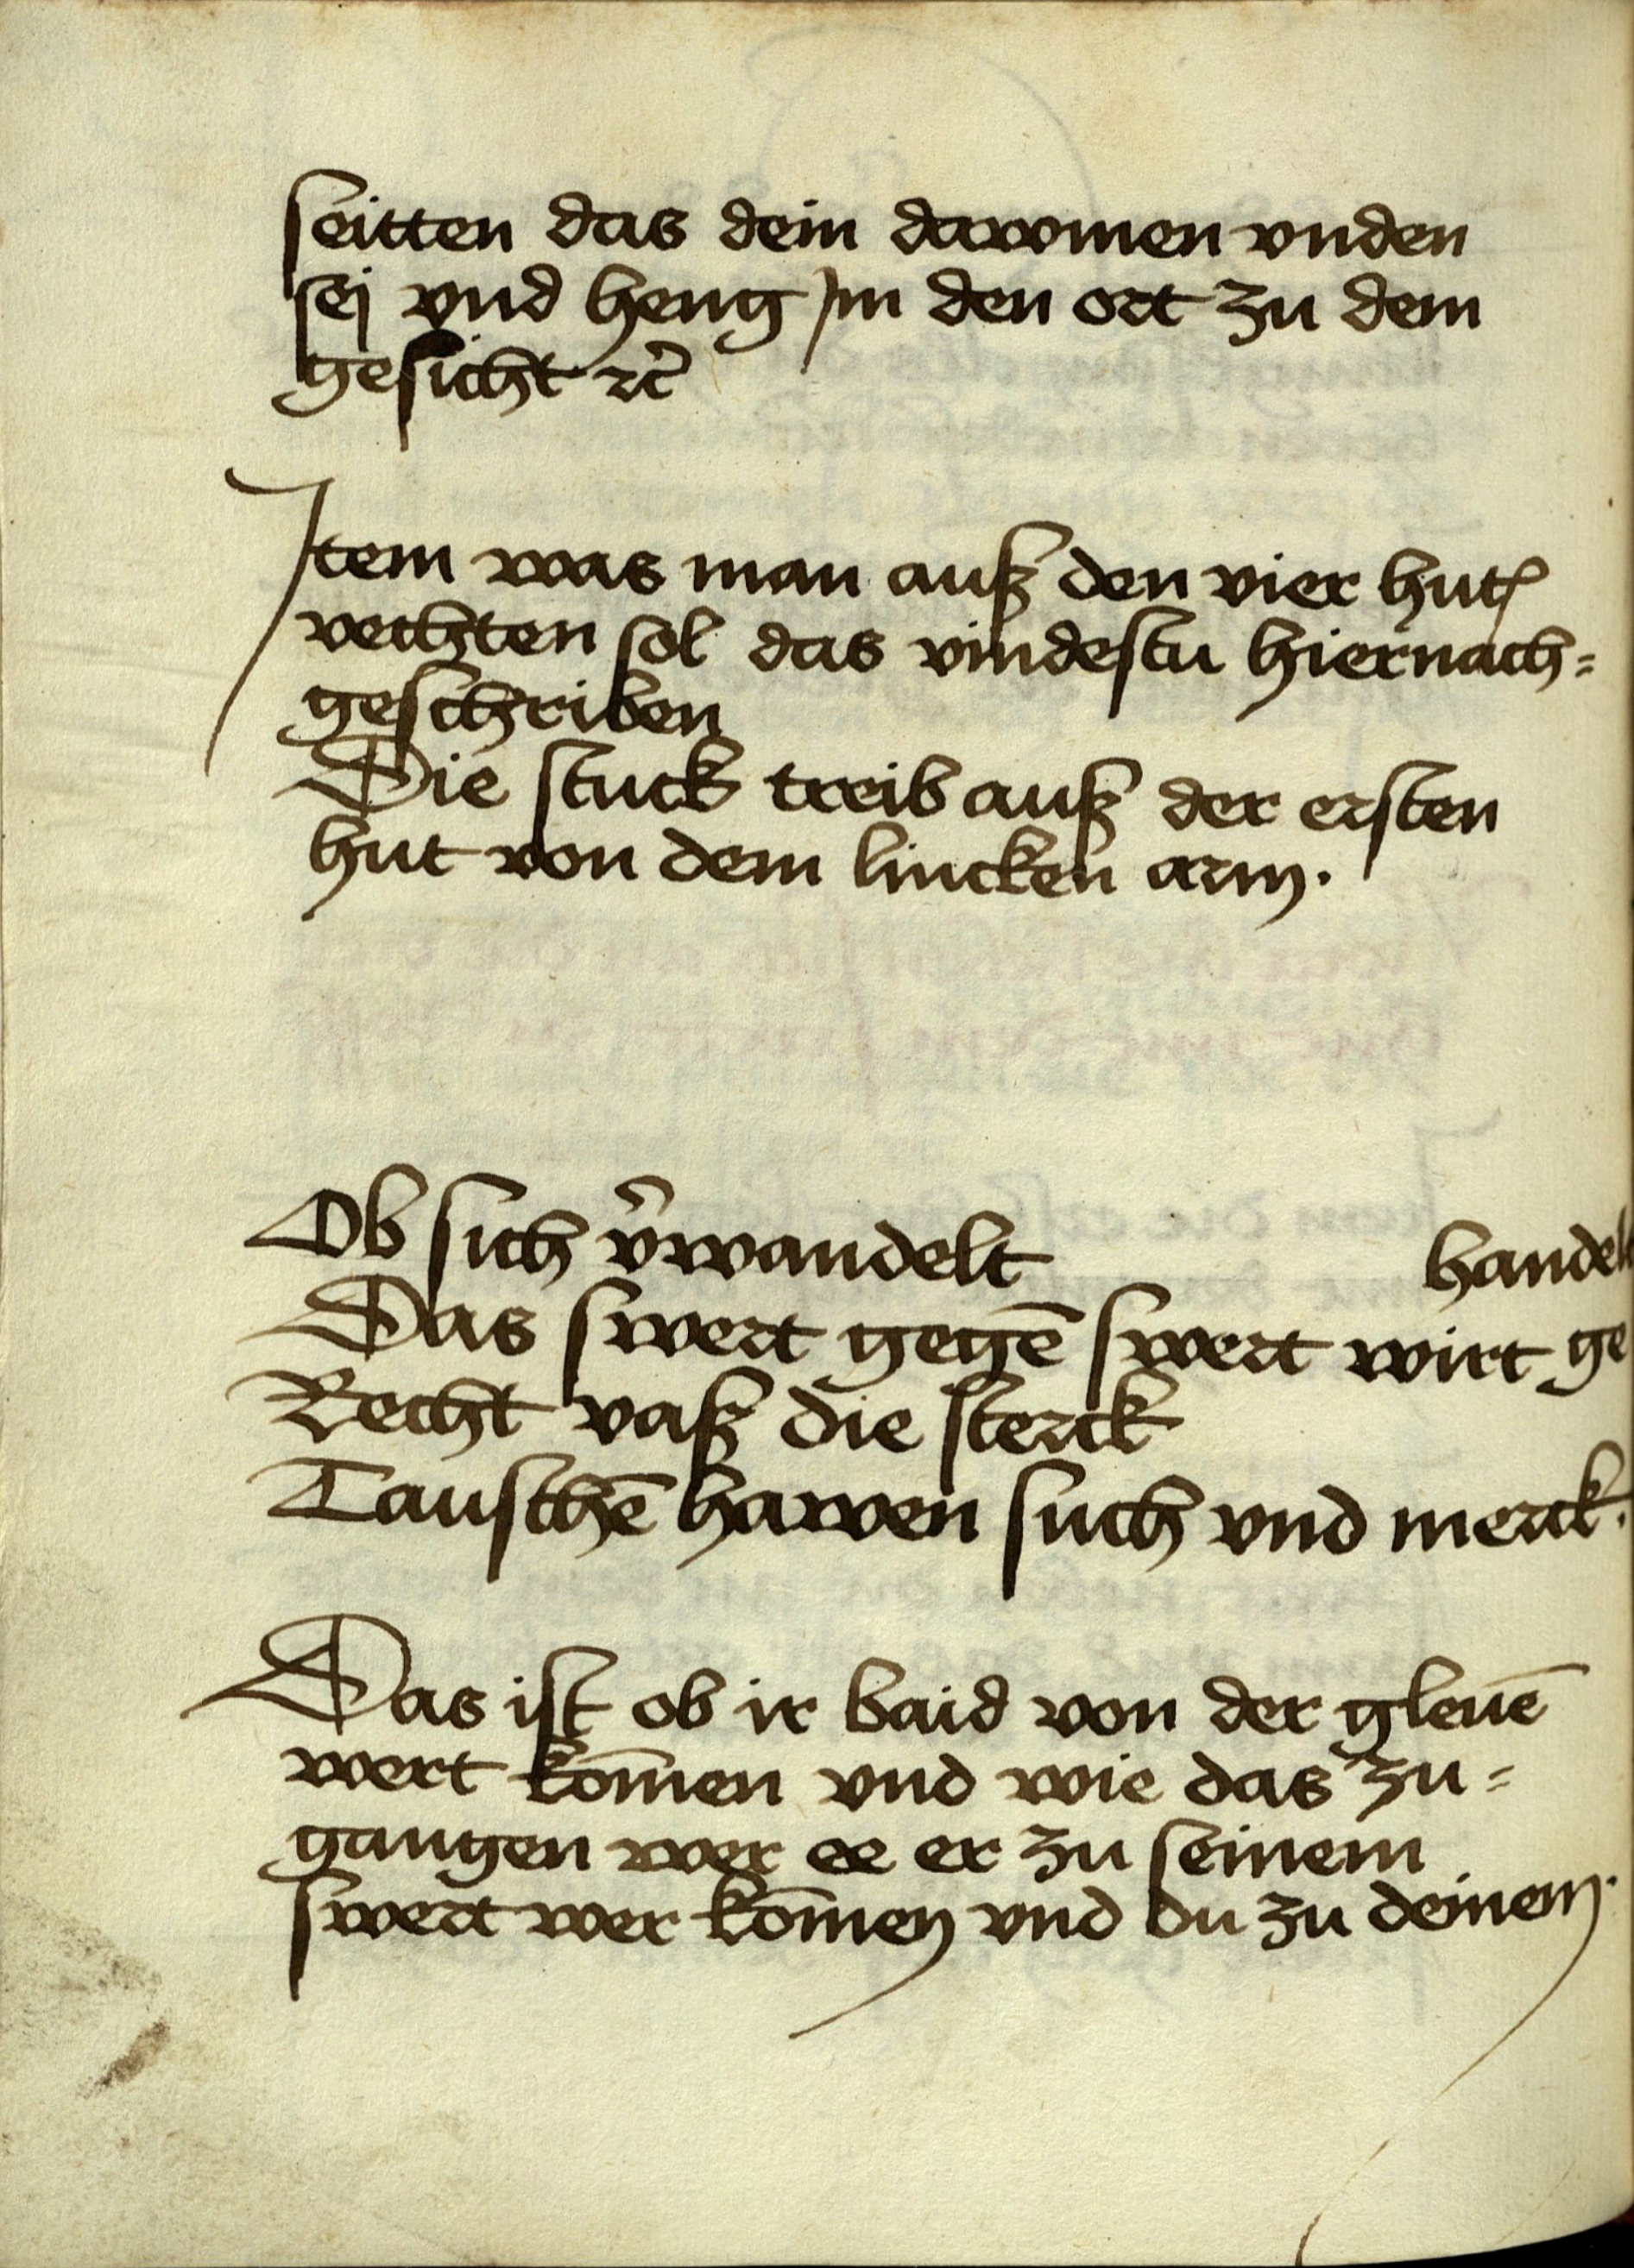 seitten das dein dawmen vnden
sej vnd heng jm den ort zu dem
gesicht rc̄
Item was man auß den vier hut̄
vechten sol das vindestu hiernach=
geschriben
Die stuck treib auß der ersten
hut von dem lincken arm.
Ob sich v̄wandelt handelt
Das swert gegē swert wirt ge
Recht vaß die sterck
Tauschē hawen such vnd merck.
Das ist ob ir baid von der gleuē
wert kōmen vnd wie das zu=
gangen wer ee er zu seinem
swert wer kōmen vnd du zu deinem.